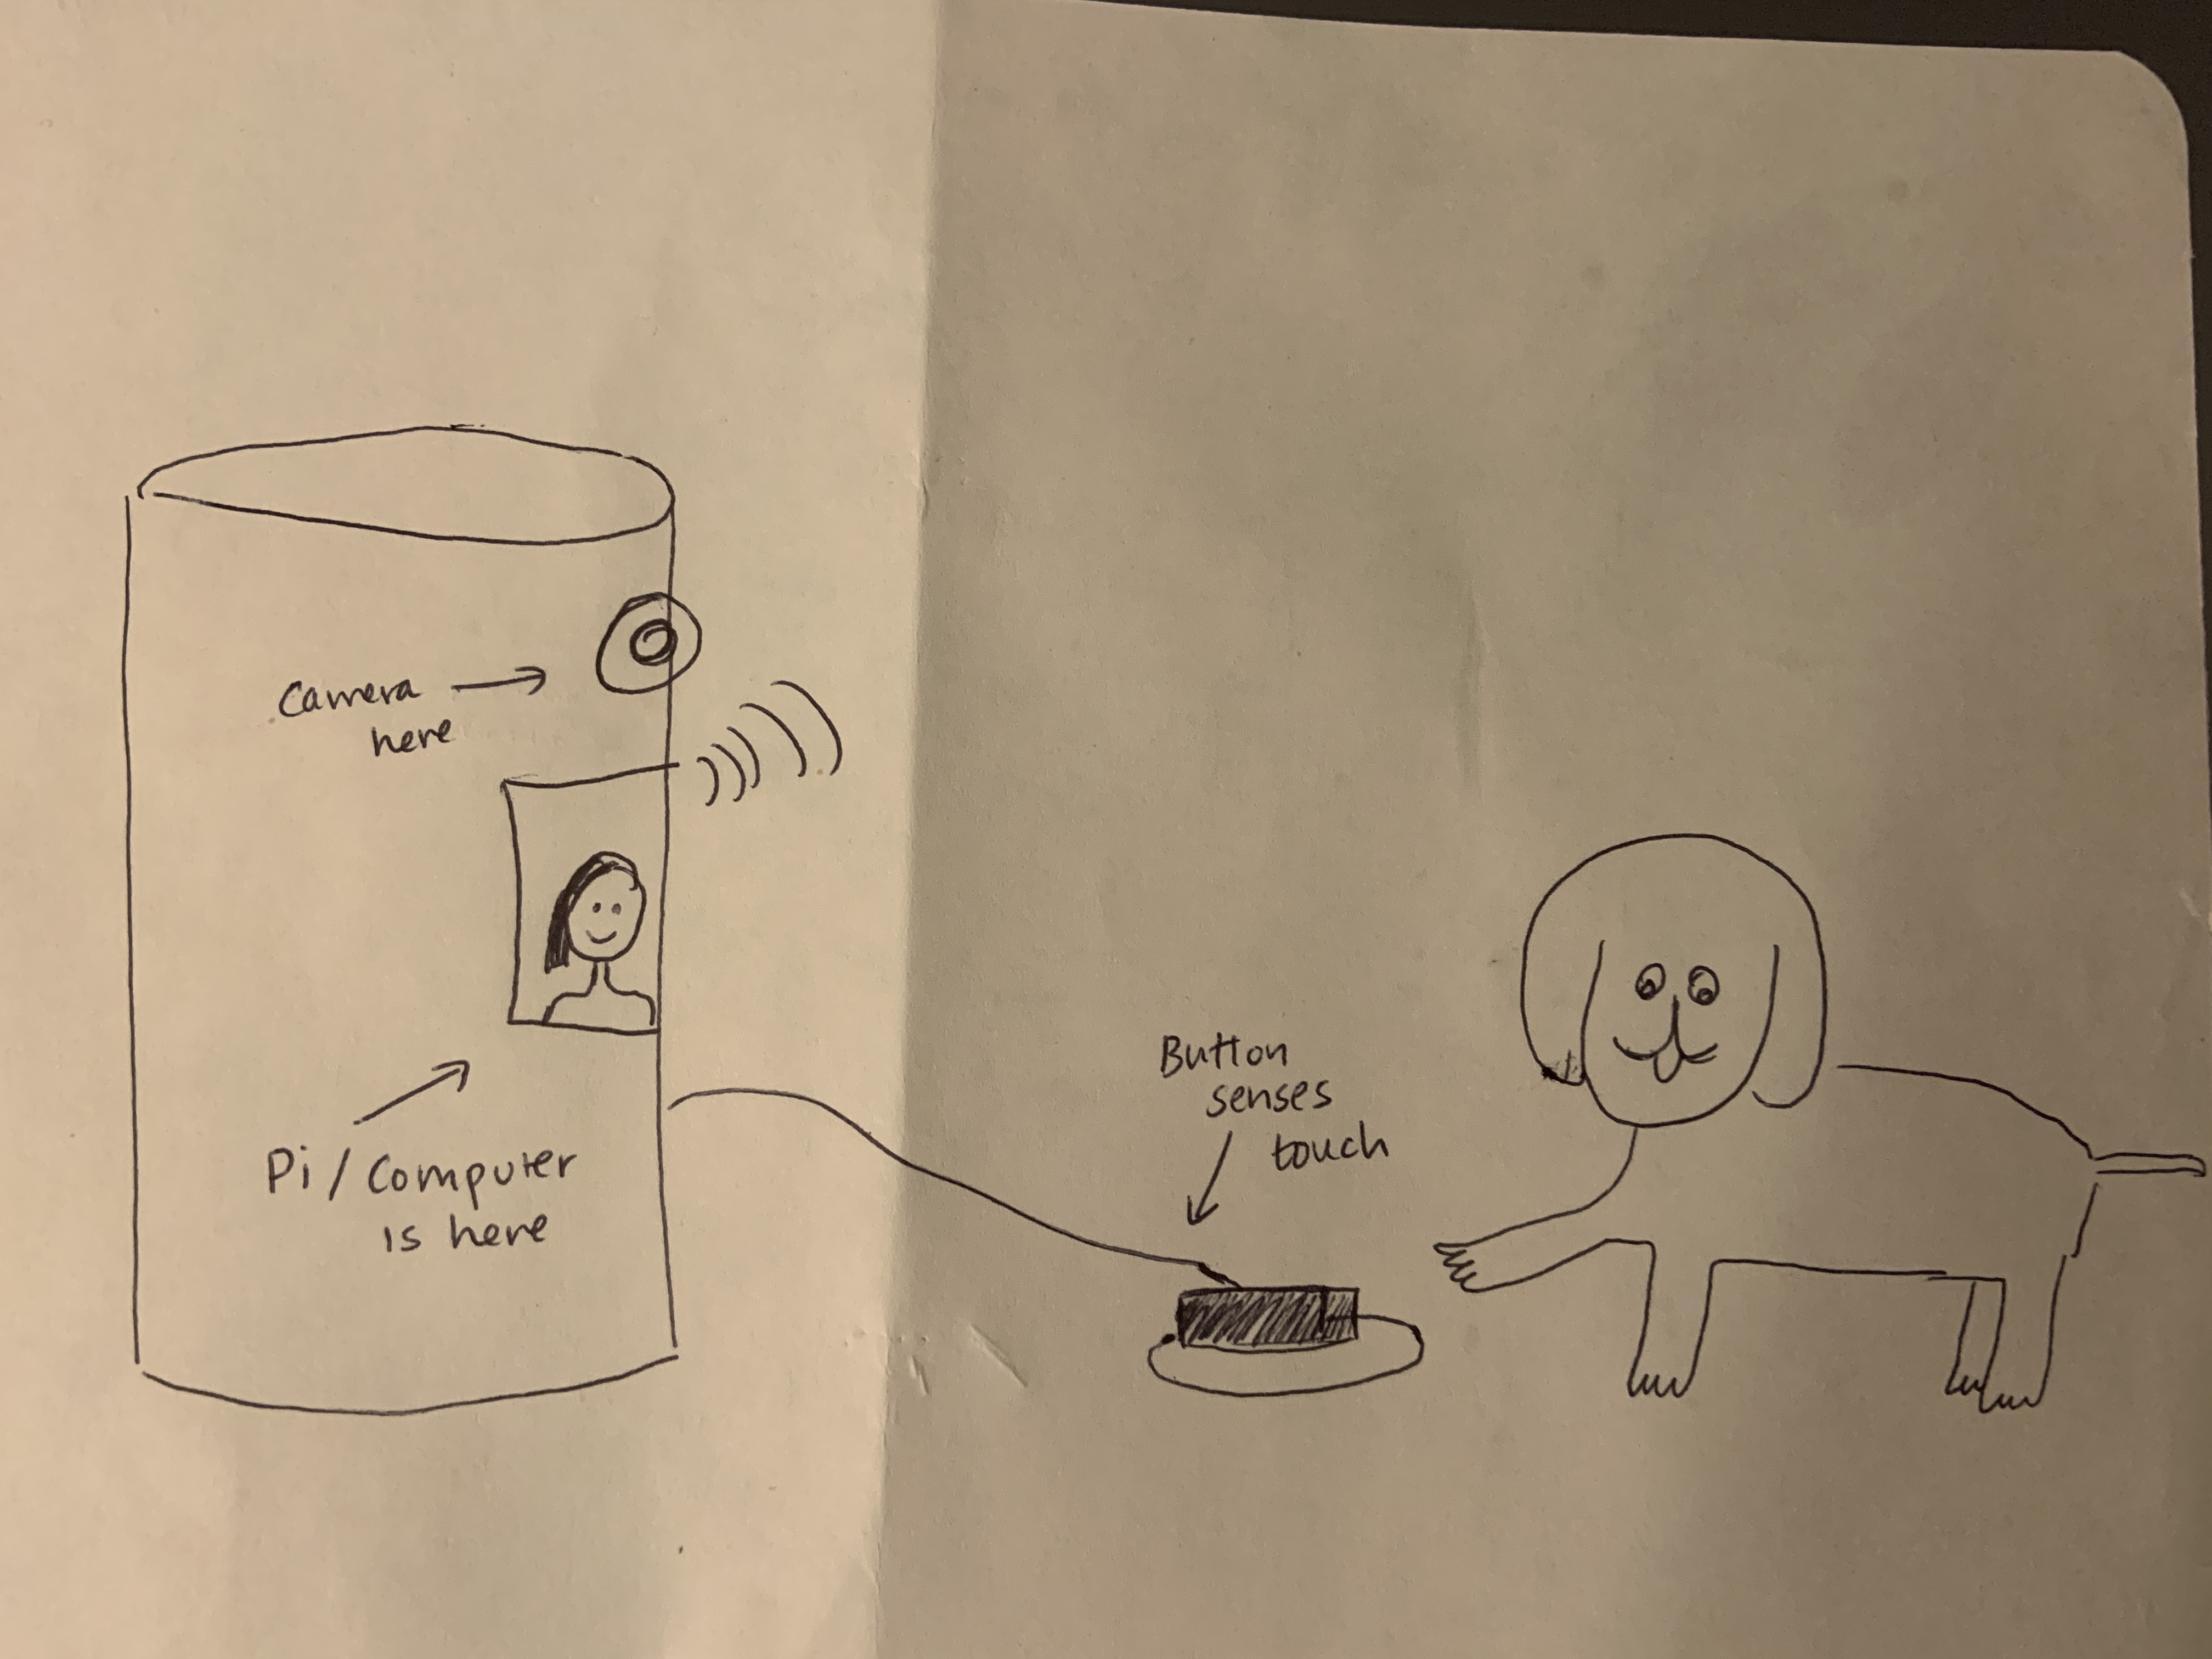 Camera
here
Pi / Computer
is here
Button
senses
touch